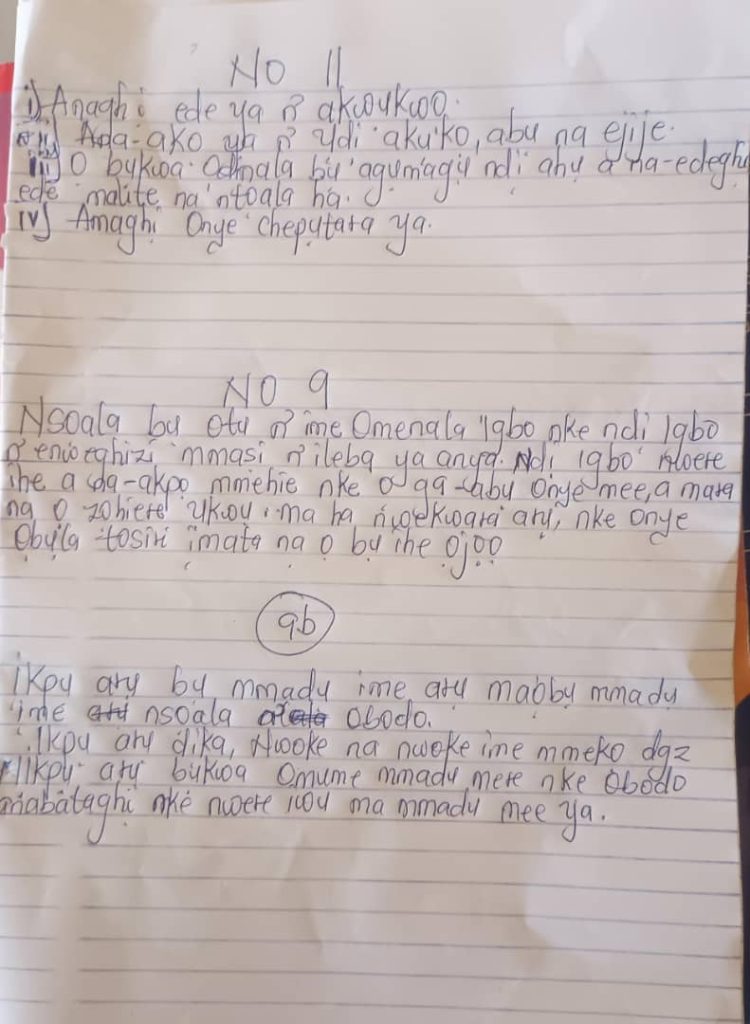 NO 11
i) Anaghị ede ya n' akwụkwọ.
ii) Ana-akọ ya n' ụdị akụkọ, abụ na ejije.
iii) O bụkwa Odịnala bụ agụmagụ ndị ahụ a na-edeghị
ede malite na ntọala ha.
IV) Amaghị Onye chepụtara ya.
NO 9
Nsọala bụ otu n' ime Omenala Igbo nke ndi Igbo
n' enweghizi mmasi n' ileba ya anya. Ndi Igbo nwere
ihe a na-akpọ mmehie nke o ga-abu Onye mee, a mara
na o zohiere ụkwụ. ma ha nwekwara arụ, nke Onye
Obụla tosiri imata na o bụ ihe ojọọ
9b
Ikpu arụ bụ mmadu ime arụ maọbụ mmadu
ime nsọala obodo.
Ikpu arụ dika, Nwoke na nwoke ime mmeko dgz
Ikpu arụ bụkwa Omume mmadu mere nke Obodo
anabataghị nke nwere iwu ma mmadu mee ya.